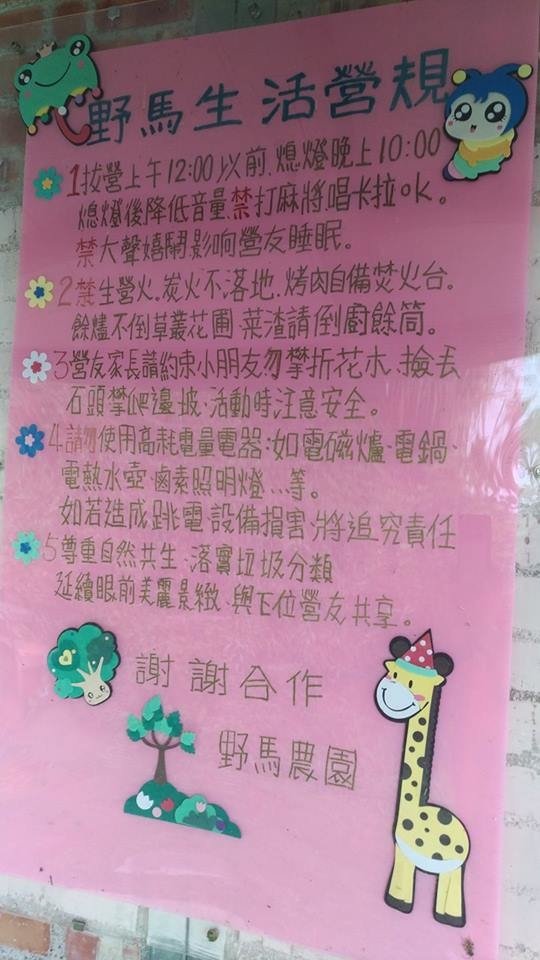 野馬生活營規
1拔營上午12:00以前.熄燈晚上10:00
熄燈後降低音量.禁打麻將唱卡拉ok。
禁大聲嬉鬧影响營友睡眠。
2禁生營火.炭火不落地.烤肉自備焚火台.
餘燼不倒草叢花圃.菜渣請倒廚餘筒。
3營友家長請約束小朋友勿攀折花木.撿丟
石頭攀爬邊坡.活動時注意安全。
4.請勿使用高耗電量電器:如電磁爐.電鍋.
電熱水壺.鹵素照明燈...等。
如若造成跳電.設備損害.將追究責任
5尊重自然共生.落實垃圾分類
延續眼前美麗景緻.與下位營友共享。
謝謝合作
野馬農園